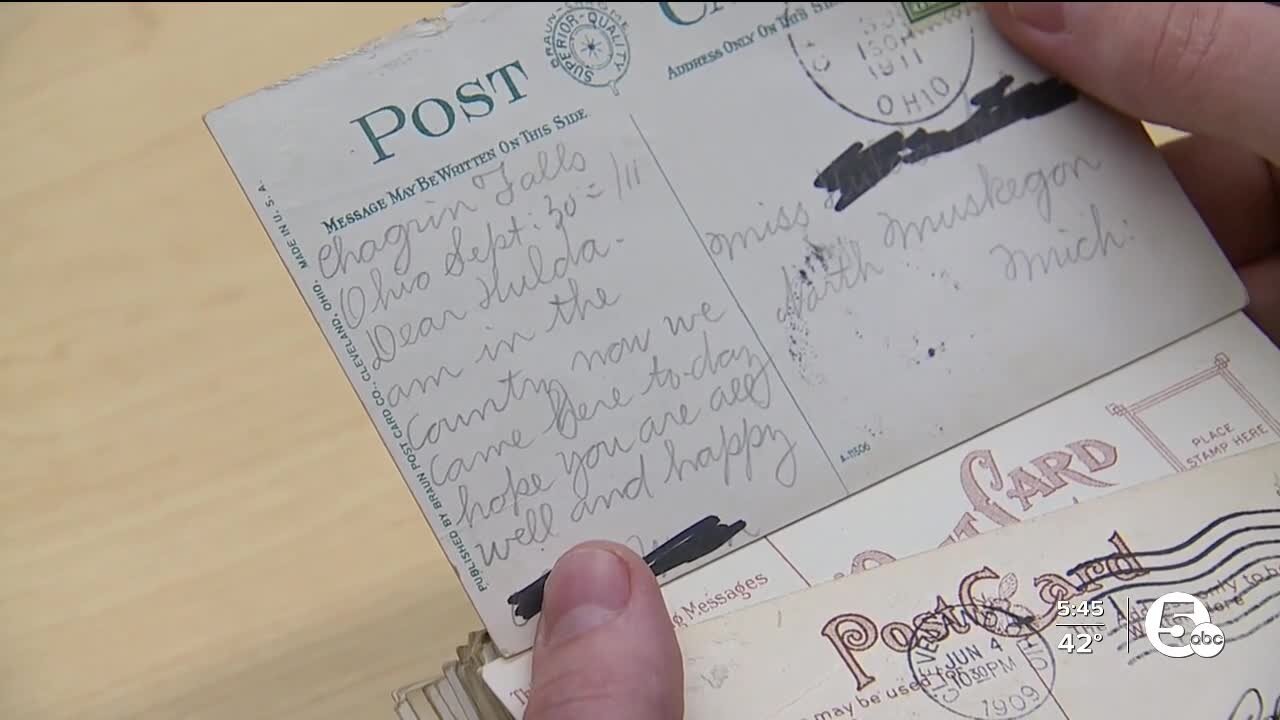 POST
BRAUN
SUPERIOR-QUALITY
MESSAGE MAY BE WRITTEN ON THIS SIDE
ADDRESS ONLY ON THIS SIDE
1911
OHIO
MADE IN U.S.A.
PUBLISHED BY BRAUN POST CARD CO., CLEVELAND, OHIO.
Chagrin Falls
Ohio Sept: 30 = /11
Dear Hulda-
am in the
Country now we
came here to-day
hope you are all
well and happy
Miss
North Muskegon
Mich:
A-11506
CARD
PLACE
STAMP HERE
Messages
Post Card
JUN 4
1030PM
1909
may be used
5:45
42°
5
abc